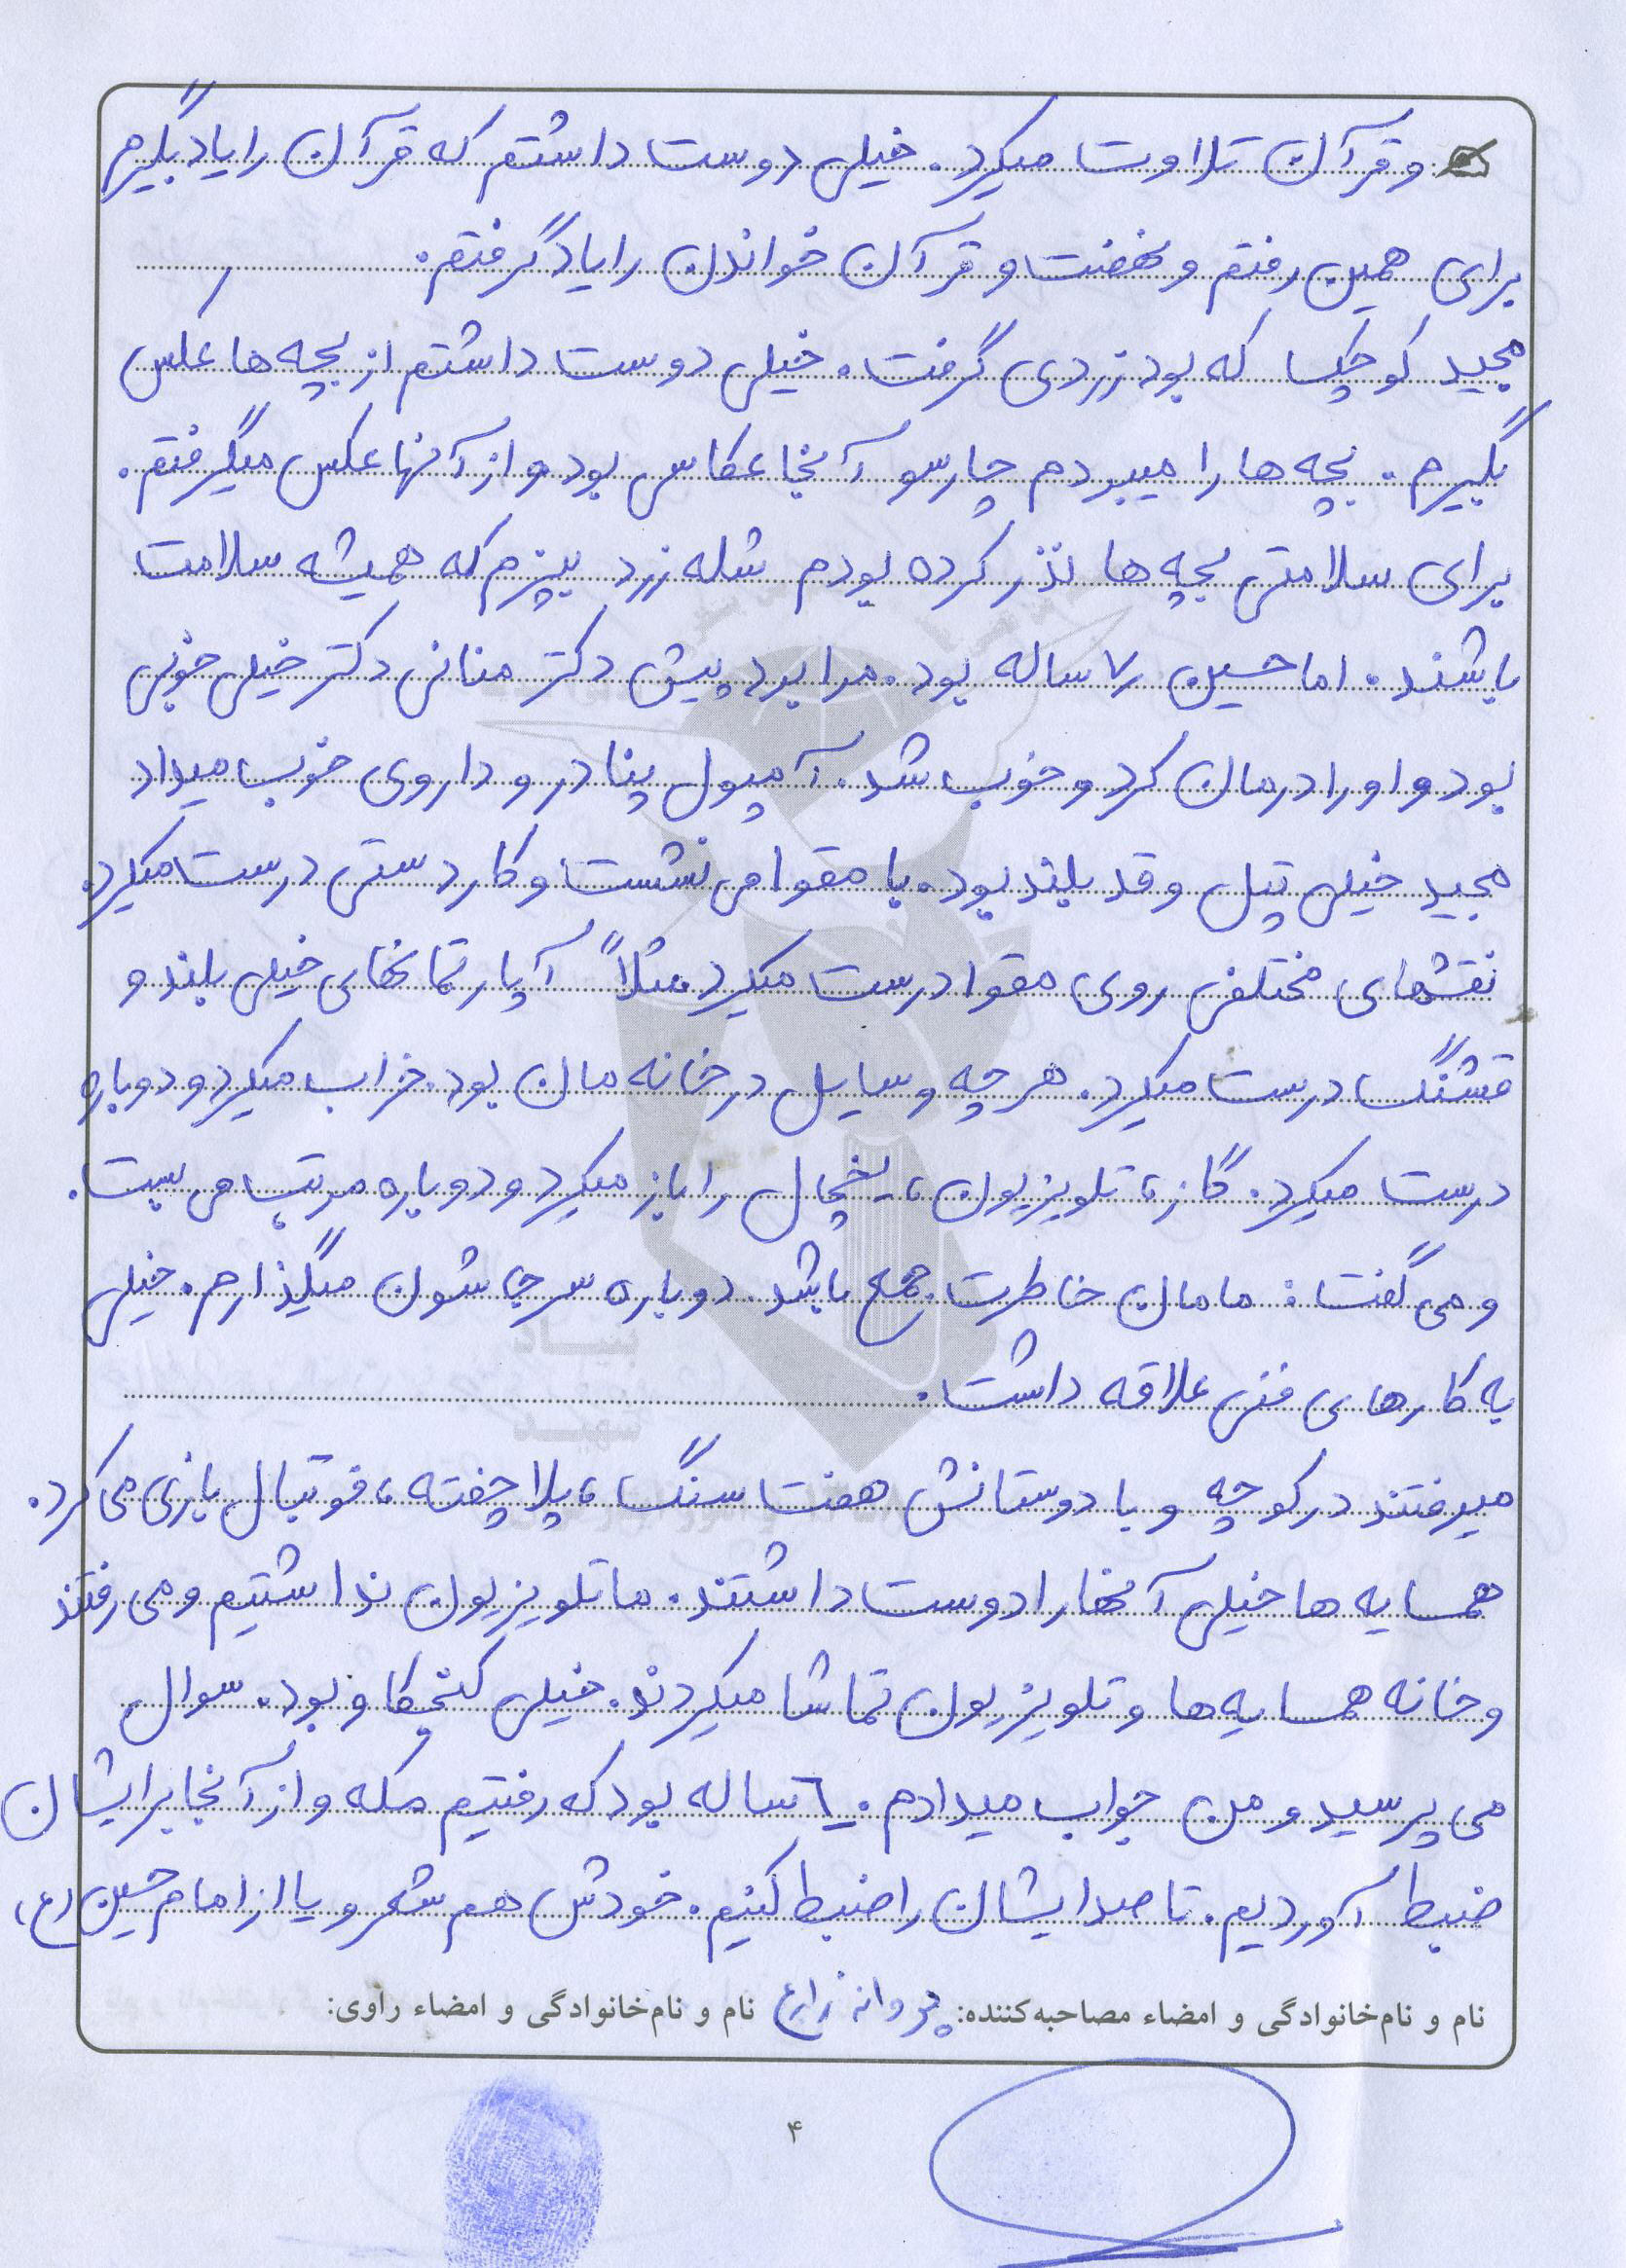 و قرآن تلاوت میکرد. خیلی دوست داشتم که قرآن را یاد بگیرم
برای همین رفتم و نهضت و قرآن خواندن را یاد گرفتم.
مجید کوچک که بود زردی گرفت. خیلی دوست داشتم از بچه ها عکس
بگیرم. بچه ها را میبردم چارسو آنجا عکاس بود و از آنها عکس میگرفتم.
برای سلامتی بچه ها نذر کرده بودم شله زرد بپزم که همیشه سلامت
باشند. اما حسین ۷ ساله بود. مرا برد پیش دکتر منانی دکتر خیلی خوبی
بود و او را درمان کرد و خوب شد. آمپول پنادر و داروی خوب میداد
مجید خیلی تپل و قد بلند بود. با مقوا می نشست و کاردستی درست میکرد.
نقشهای مختلفی روی مقوا درست میکرد مثلاً آپارتمانهای خیلی بلند و
قشنگ درست میکرد. هر چه وسایل در خانه مان بود خراب میکرد و دوباره
درست میکرد. گاز، تلویزیون، یخچال را باز میکرد و دوباره مرتب می بست.
و می گفت: مامان خاطرت جمع باشد دوباره سر جاشون میگذارم. خیلی
به کارهای فنی علاقه داشت.
میرفتند در کوچه و با دوستانش هفت سنگ، پلاچفته، فوتبال بازی می کرد.
همسایه ها خیلی آنها را دوست داشتند. ما تلویزیون نداشتیم و می رفتند
و خانه همسایه ها و تلویزیون تماشا میکردند. خیلی کنجکاو بود. سوال
می پرسید و من جواب میدادم. ٦ ساله بود که رفتیم مکه و از آنجا برایشان
ضبط آوردیم. تا صدایشان را ضبط کنیم. خودش هم شعر و یا از امام حسین (ع)
نام و نام‌خانوادگی و امضاء مصاحبه‌کننده: پروانه زارع نام و نام‌خانوادگی و امضاء راوی:
۴